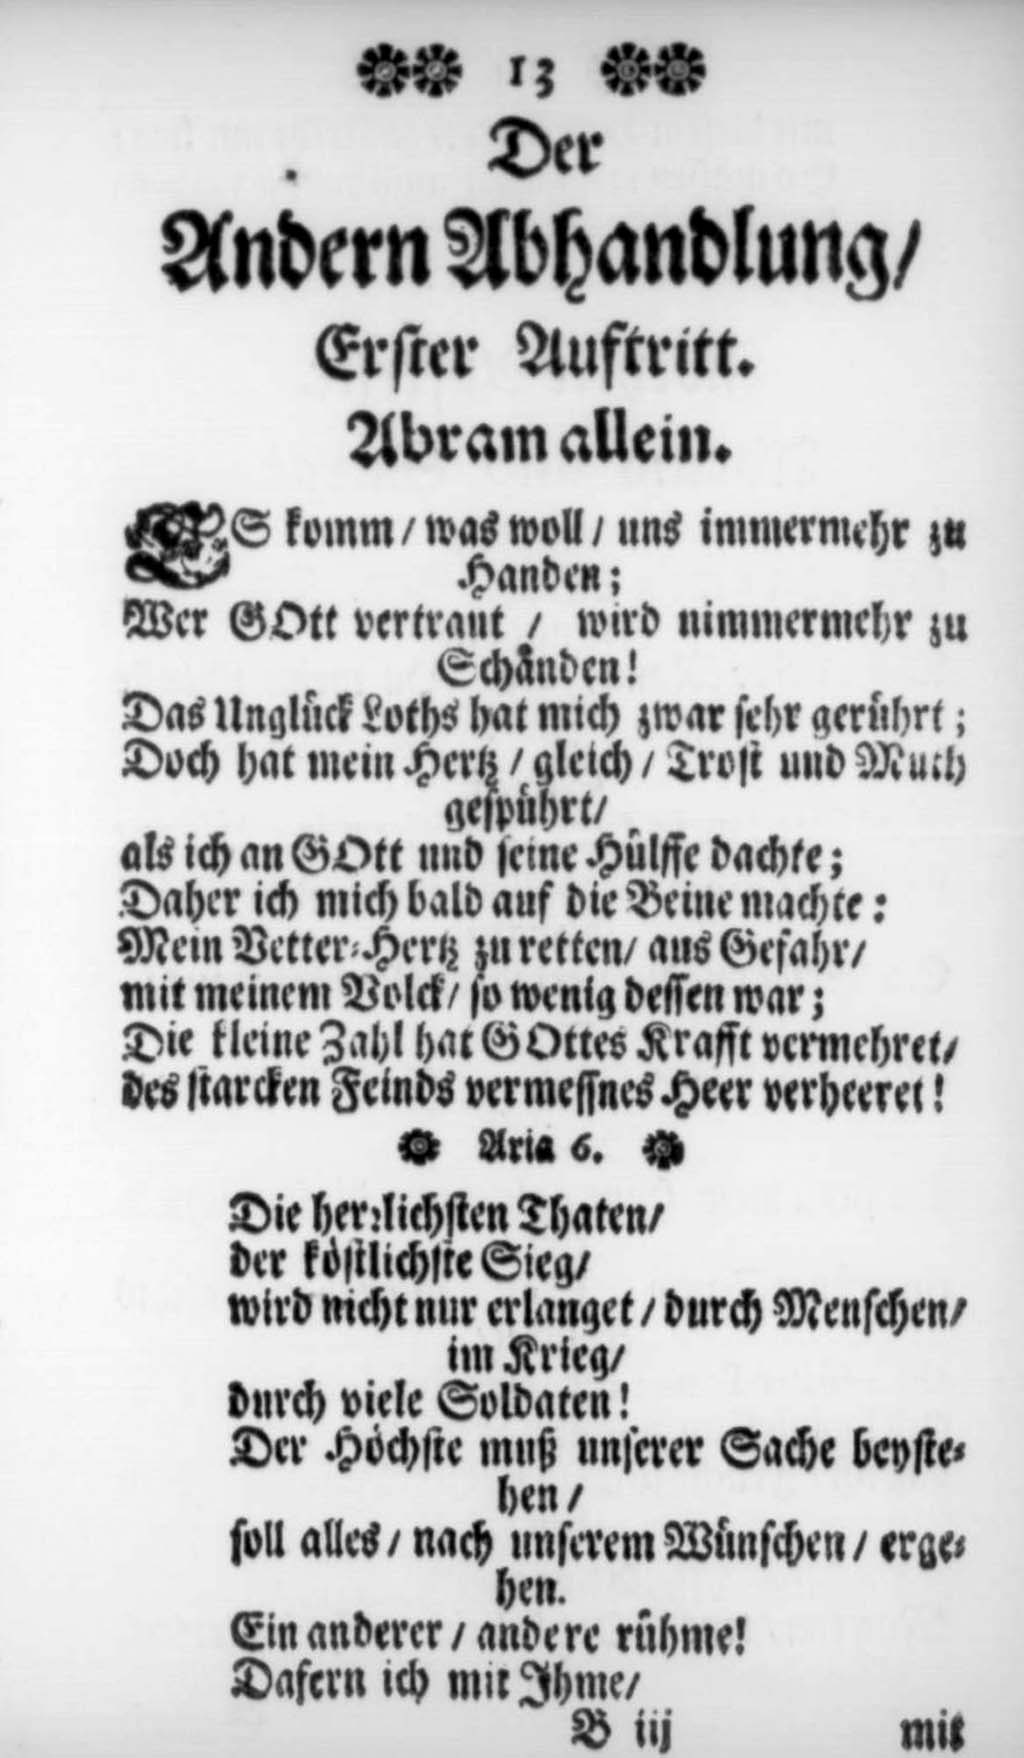 13
Der
Andern Abhandlung/
Erster Auftritt.
Abram allein.
ES komm / was woll / uns immermehr zu
Handen;
Wer GOtt vertraut / wird nimmermehr zu
Schånden!
Das Unglück Loths hat mich zwar sehr gerührt;
Doch hat mein Hertz / gleich / Trost und Muth
gespührt/
als ich an GOtt und seine Hülffe dachte;
Daher ich mich bald auf die Beine machte:
Mein Vetter-Hertz zu retten/ aus Gefahr/
mit meinem Volck/ so wenig dessen war;
Die kleine Zahl hat GOttes Krafft vermehret/
des starcken Feinds vermessnes Heer verheeret!
Aria 6.
Die herrlichsten Thaten/
der köstlichste Sieg/
wird nicht nur erlanget / durch Menschen/
im Krieg/
durch viele Soldaten!
Der Höchste muß unserer Sache beyste-
hen /
soll alles / nach unserem Wünschen / erge-
hen.
Ein anderer / andere rühme!
Dafern ich mit Ihme/
B iij mit